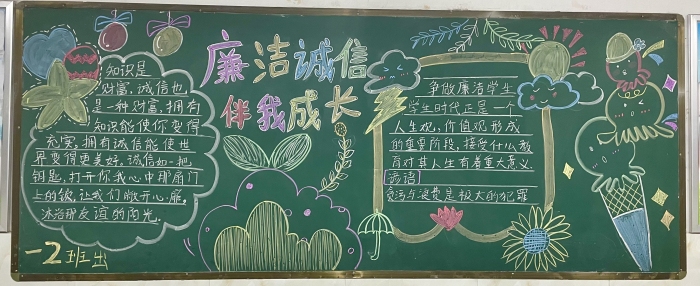 知识是
财富,诚信也
是一种财富,拥有
知识能使你变得
充实,拥有诚信能使世
界变得更美好。诚信如一把
钥匙,打开你我心中那扇门
上的锁,让我们敞开心扉,
沐浴那友谊的阳光。
一2班出
廉洁诚信
伴我成长
争做廉洁学生
学生时代正是一个
人生观,价值观形成
的重要阶段,接受什么教
育对其人生有着重大意义.
谚语
贪污与浪费是极大的犯罪